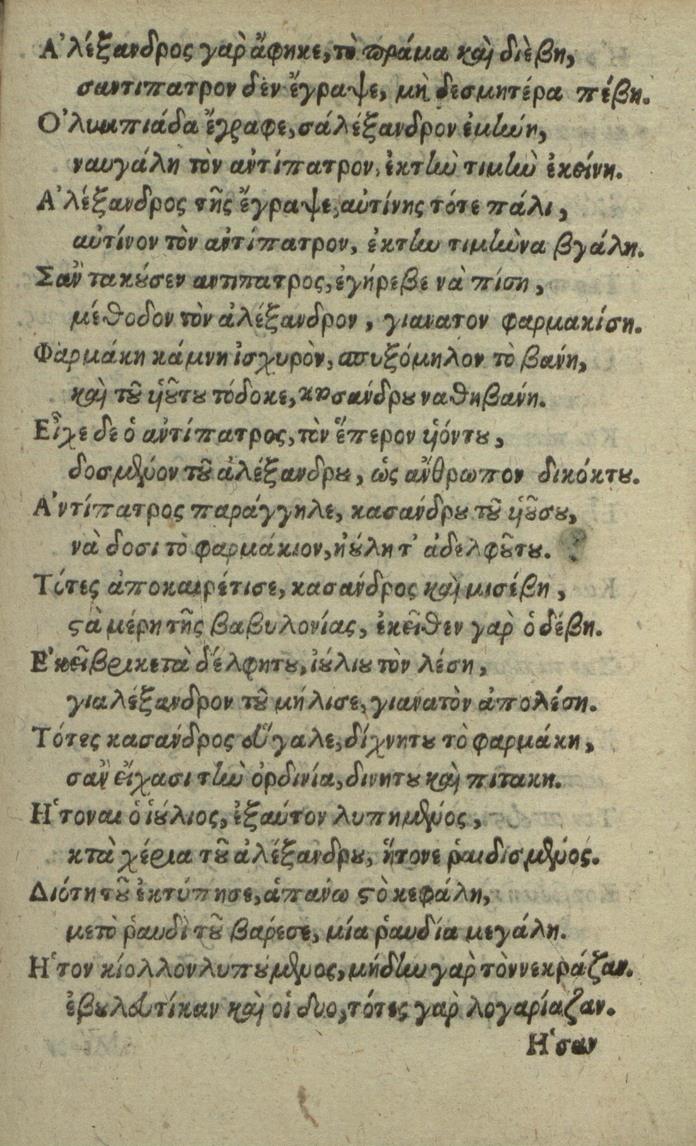 Ἀλέξανδρος γαρ ἄφηκε, τὸ πράμα καὶ διέβη,
σαντιπατρον δὲν ἔγραψε, μὴ δεσμητέρα πέβη.
Ὀλυμπιάδα ἔγραφε, σἀλέξανδρον ἐμίνη,
ναυγάλη τὸν αντίπατρον, ἐκτὴν τιμὴν ἐκείνη.
Ἀλέξανδρος τῆς ἔγραψε, αὐτίνης τότε πάλι,
αὐτίνον τὸν αντίπατρον, ἐκτὴν τιμὴν να βγάλη.
Σαν τακούσεν αντιπατρος, ἐγήρεβε νὰ πίση,
μέθοδον τὸν ἀλέξανδρον, γιανατον φαρμακίση.
Φαρμάκη κάμνη ἰσχυρὸν, απυξόμηλον τὸ βανή,
καὶ τοῦ ὑιοῦτου τόδοκε, κασάνδρου να θηβανή.
Εἶχε δε ὁ αντίπατρος, τὸν ἕπερον ὑιόντου,
δοσμένον τοῦ ἀλέξανδρου, ὡς ἄνθρωπον δικόκτου.
Ἀντίπατρος παράγγηλε, κασάνδρου τοῦ ὑιοῦσου,
νὰ δοσι το φαρμάκιον, ηύλη τ' ἀδελφοῦτου.
Τότες ἀποκαιρέτισε, κασάνδρος καὶ μισέβη,
στὰ μέρη τῆς βαβυλονίας, ἐκεῖθεν γαρ ὁδέβη.
Ἐκεῖ βρικετὰ δέλφητου, ἰύλιου τὸν λέση,
γιαλέξανδρον τοῦ μήλισε, γιανατὸν ἀπολέση.
Τότες κασάνδρος εὔγαλε, δίχνητου το φαρμάκη,
σαν εἴχασι τὴν ὀρδινία, δινητου καὶ πιτακη.
Ἥτοναι ὁ ἰύλιος, ἐξαύτον λυπημένος,
κτὰ χέρια τοῦ ἀλέξανδρου, ἥτονε ῥαιδισμένος.
Διότη τοῦ ἐκτύπησε, ἀπανω στὸ κεφάλη,
μετὸ ῥαυδὶ τοῦ βαρεσε, μία ῥαυδία μεγάλη.
Ἥτον κίολλον λυπουμένος, μήδὴν γαρ τὸν νεκράζαν.
ἐβουλευτίκαν καὶ οἱ δυο, τότες γαρ λογαρίαζαν.
Ἥσαν